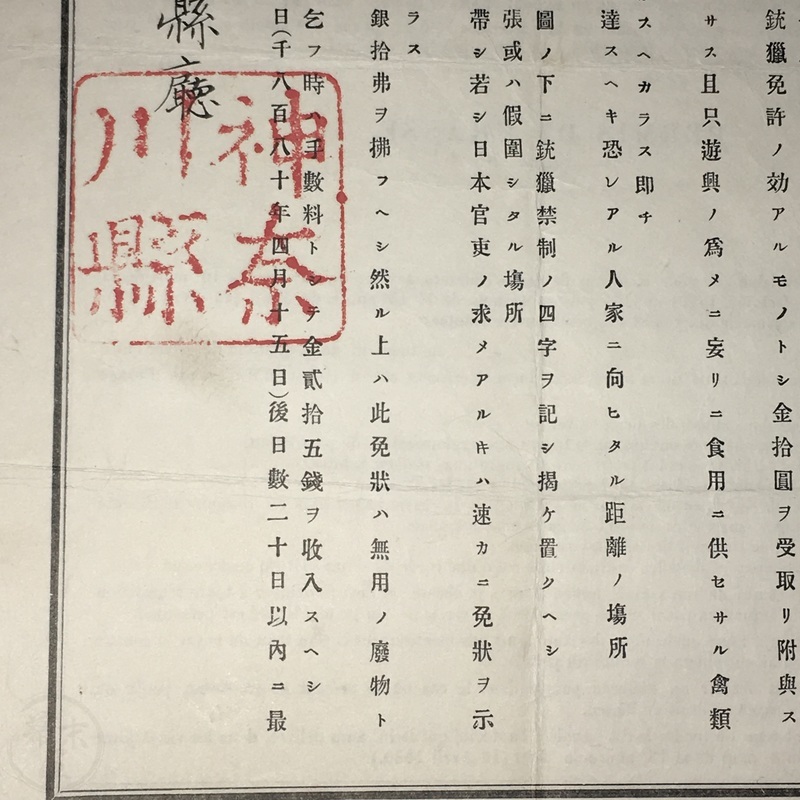 銃獵免許ノ効アルモノトシ金拾圓ヲ受取リ附與ス
サス且只遊興ノ爲メニ妄リニ食用ニ供セサル禽類
スヘカラス即チ
達スヘキ恐レアル人家ニ向ヒタル距離ノ塲所
圖ノ下ニ銃獵禁制ノ四字ヲ記シ揭ケ置クヘシ
張或ハ假圍シタル塲所
帶シ若シ日本官吏ノ求メアルキハ速カニ免狀ヲ示
ラス
銀拾弗ヲ拂フヘシ然ル上ハ此免狀ハ無用ノ廢物ト
乞フ時ハ手數料トシテ金貳拾五錢ヲ收入スヘシ
日(千八百八十年四月十五日)後日數二十日以內ニ最
縣廳
神奈
川縣